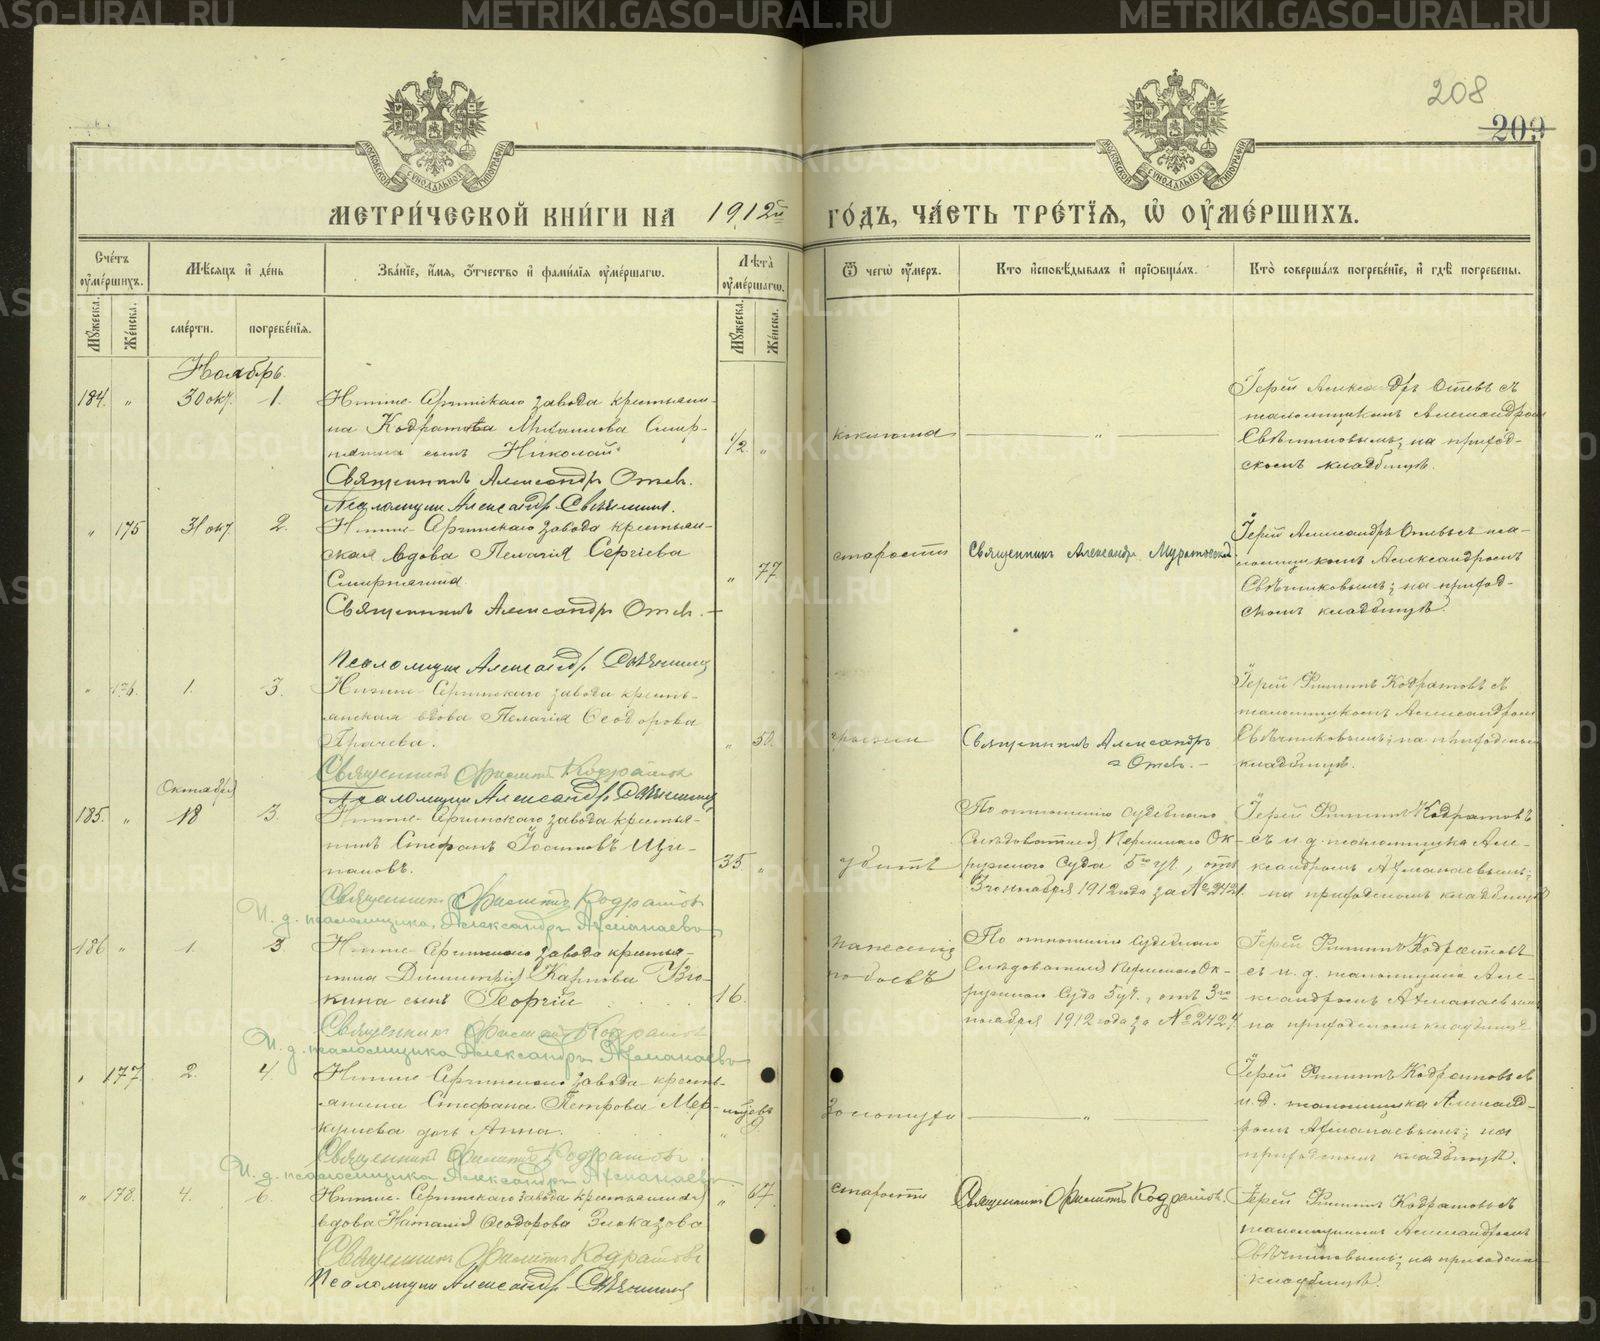 208
209
МОСКОВСКОЙ СУНОДАЛЬНОЙ ТИПОГРАФІИ
МОСКОВСКОЙ СУНОДАЛЬНОЙ ТИПОГРАФІИ
МЕТРИ́ЧЕСКОЙ КНИ́ГИ НА 1912й ГО́ДЪ, ЧА́СТЬ ТРЕ́ТІЯ, Ѡ ОУМЕ́РШИХЪ.
Сче́тъ оуме́ршихъ.
Мѣ́сяцъ и де́нь
Зва́ніе, и́мя, о́тчество и фами́лія оуме́ршагѡ.
Лѣта̀ оуме́ршагѡ.
Ѿ чегѡ̀ оу́меръ.
Кто̀ исповѣ́дывалъ и пріѡбща́лъ.
Кто̀ соверша́лъ погребе́ніе, и гдѣ̀ погребены.
Мꙋ́жеска. Же́нска. сме́рти. погребе́нія. Мꙋ́жеска. Же́нска.
Ноябрь.
184. " 30 окт. 1.
Нижне-Сергинскаго завода крестьяни-
на Кодратова Михаилова Смир-
нягина сынъ Николай
Священникъ Александръ Отевъ.
Псаломщик Александръ Свѣчников.
1/2. "
коклюша
"
Іерей Александръ Отевъ съ
псаломщикомъ Александромъ
Свѣчниковымъ; на приход-
скомъ кладбищѣ.
" 175 31 окт. 2.
Нижне-Сергинскаго завода крестьян-
ская вдова Пелагія Сергіева
Смирнягина.
Священникъ Александръ Отевъ.
Псаломщик Александръ Свѣчников
" 77
старости
Священникъ Александръ Муратовскій
Іерей Александръ Отевъ съ пса-
ломщикомъ Александромъ
Свѣчниковымъ; на приход-
скомъ кладбищѣ.
" 176. 1. 3.
Нижне-Сергинскаго завода кресть-
янская вдова Пелагія Ѳеодорова
Грачева.
Священникъ Филиппъ Кодратовъ
Псаломщик Александръ Свѣчников
" 50.
Священникъ Александръ
Отевъ.
Іерей Филиппъ Кодратовъ съ
псаломщикомъ Александромъ
Свѣчниковымъ; на приходскомъ
кладбищѣ.
Октября
185. " 18 3.
Нижне-Сергинскаго завода крестья-
нинъ Стефанъ Іосифовъ Щи-
пановъ.
Священникъ Филиппъ Кодратовъ
И. д. псаломщика, Александръ Аѳманаевъ
35 "
убитъ
По отношенію Судебнаго
Слѣдователя Пермскаго Ок-
ружнаго Суда 5го уч., отъ
3го ноября 1912 года за № 2421.
Іерей Филиппъ Кодратовъ
съ и. д. псаломщика Але-
ксандромъ Аѳманаевымъ;
на приходскомъ кладбищѣ
186 " 1. 3
Нижне-Сергинскаго завода крестья-
нина Димитрія Карпова
сынъ Георгій
Священникъ Филиппъ Кодратовъ
И. д. псаломщика Александръ Аѳманаевъ
16.
нанесенія
побоевъ
По отношенію Судебнаго
Слѣдователя Пермскаго Ок-
ружнаго Суда 5 уч., отъ 3го
ноября 1912 года за № 2424
Іерей Филиппъ Кодратовъ
съ и. д. псаломщика Але-
ксандромъ Аѳманаевымъ
на приходскомъ кладбищѣ
" 177 2. 4.
Нижне-Сергинскаго завода кресть-
янина Стефана Петрова Мер-
курьева дочь Анна.
Священникъ Филиппъ Кодратовъ.
И. д. псаломщика Александръ Аѳманаевъ
мѣсяцевъ
" 9
"
Іерей Филиппъ Кодратовъ съ
и. д. псаломщика Александ-
ромъ Аѳманаевымъ; на
приходскомъ кладбищѣ.
" 178. 4. 6.
Нижне-Сергинскаго завода крестьянская
вдова Наталія Ѳеодорова Злоказова
Священникъ Филиппъ Кодратовъ
Псаломщик Александръ Свѣчников
" 67.
старости
Священникъ Филиппъ Кодратовъ.
Іерей Филиппъ Кодратовъ съ
псаломщикомъ Александромъ
Свѣчниковымъ; на приходскомъ
кладбищѣ.
METRIKI.GASO-URAL.RU